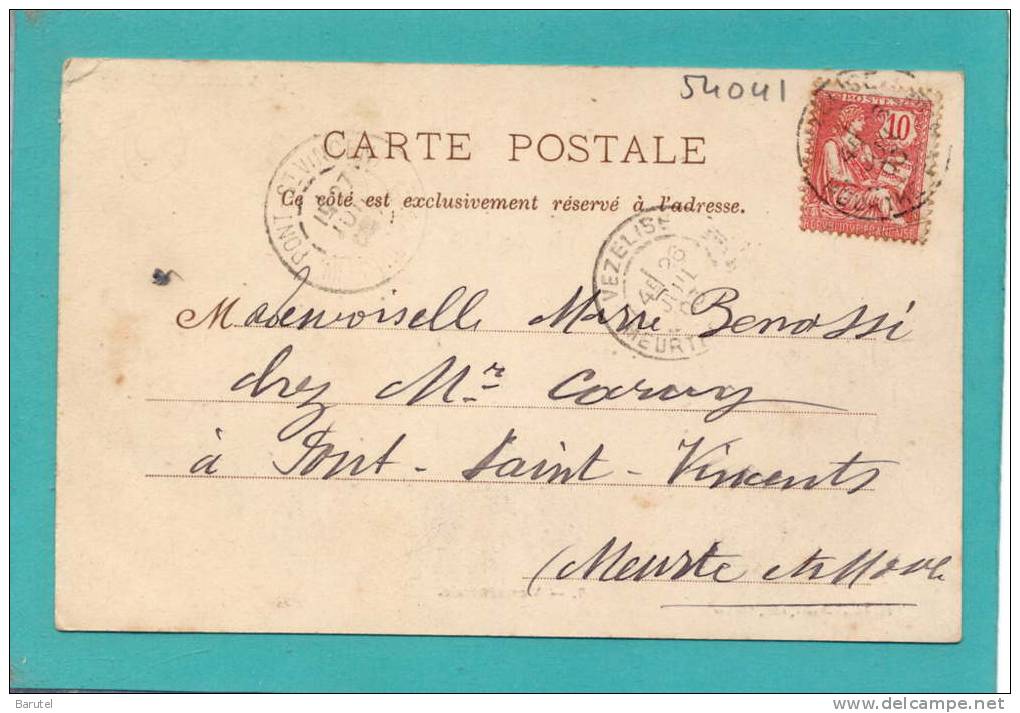 54041
POSTES
10
REPUBLIQUE FRANCAISE
CARTE POSTALE
Ce côté est exclusivement réservé à l'adresse.
PONT-ST-VINCENT
27
VEZELISE
4E
26
JUIL
03
MEURTHE
Mademoiselle Marie Benossi
chez Mr
à Pont-Saint-Vincents
(Meurthe et Mos
Barutel
www.delcampe.net